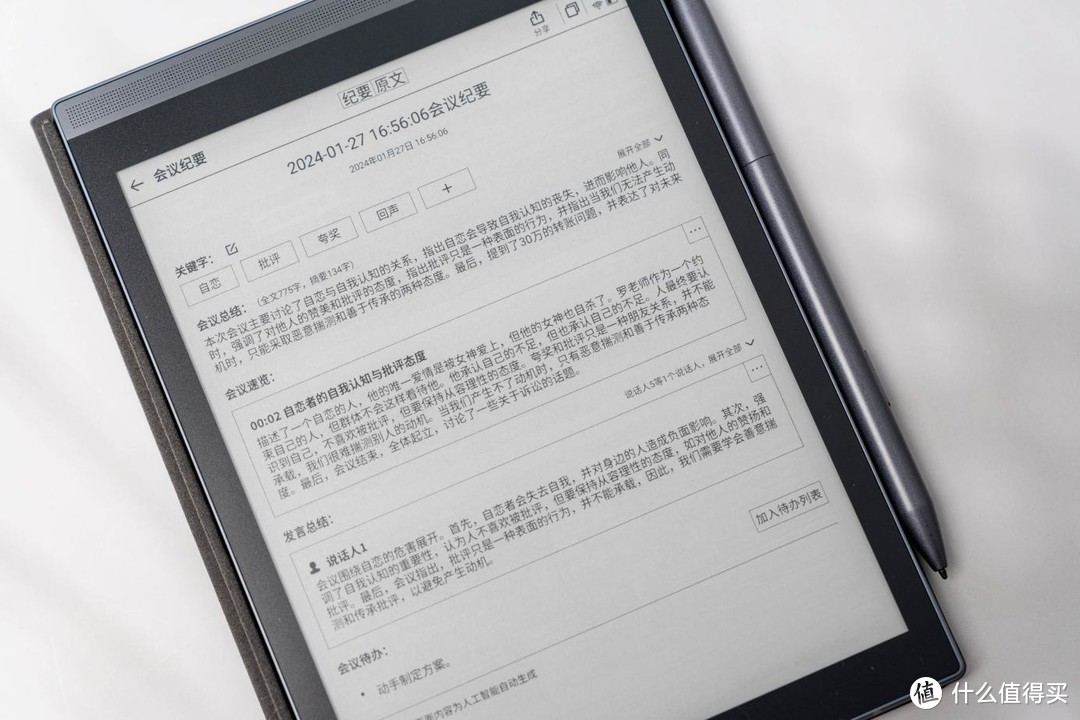 分享
纪要 原文
← 会议纪要
2024-01-27 16:56:06会议纪要
2024年01月27日 16:56:06
关键字：
展开全部
自恋 批评 夸奖 回声 +
会议总结：（全文775字，摘要134字）
本次会议主要讨论了自恋与自我认知的关系，指出自恋会导致自我认知的丧失，进而影响他人。同
时，强调了对他人的赞美和批评的态度，指出批评只是一种表面的行为，并指出当我们无法产生动
机时，只能采取恶意揣测和善于传承的两种态度。最后，提到了30万的转账问题，并表达了对未来
会议速览：
...
00:02 自恋者的自我认知与批评态度
描述了一个自恋的人，他的唯一爱情是被女神爱上，但他的女神也自杀了。罗老师作为一个约
束自己的人，但群体不会这样看待他。他承认自己的不足，但也承认自己的不足。人最终要认
识到自己，不喜欢被批评，但要保持从容理性的态度。夸奖和批评只是一种朋友关系，并不能
承载，我们很难揣测别人的动机。当我们产生不了动机时，只有恶意揣测和善于传承两种态
度。最后，会议结束，全体起立，讨论了一些关于诉讼的话题。
发言总结：
说话人5等1个说话人，展开全部
...
说话人1
会议围绕自恋的危害展开。首先，自恋者会失去自我，并对身边的人造成负面影响。其次，强
调了自我认知的重要性，认为人不喜欢被批评，但要保持从容理性的态度，如对他人的赞扬和
批评。最后，会议指出，批评只是一种表面的行为，并不能承载，因此，我们需要学会善意揣
测和传承批评，以避免产生动机。
会议待办：
加入待办列表
• 动手制定方案。
内容为人工智能自动生成
值 什么值得买